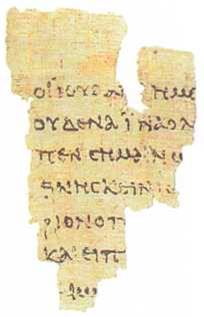 ΟΙ ΙΟΥΔΑ ΗΜΕ
ΟΥΔΕΝΑ ΪΝΑ Ο Λ
ΠΕΝ CΗΜΑΙΝΩ
ΘΝΗCΚΕΙΝ
ΡΙΟΝ Ο Π
ΚΑΙ ΕΙΠ